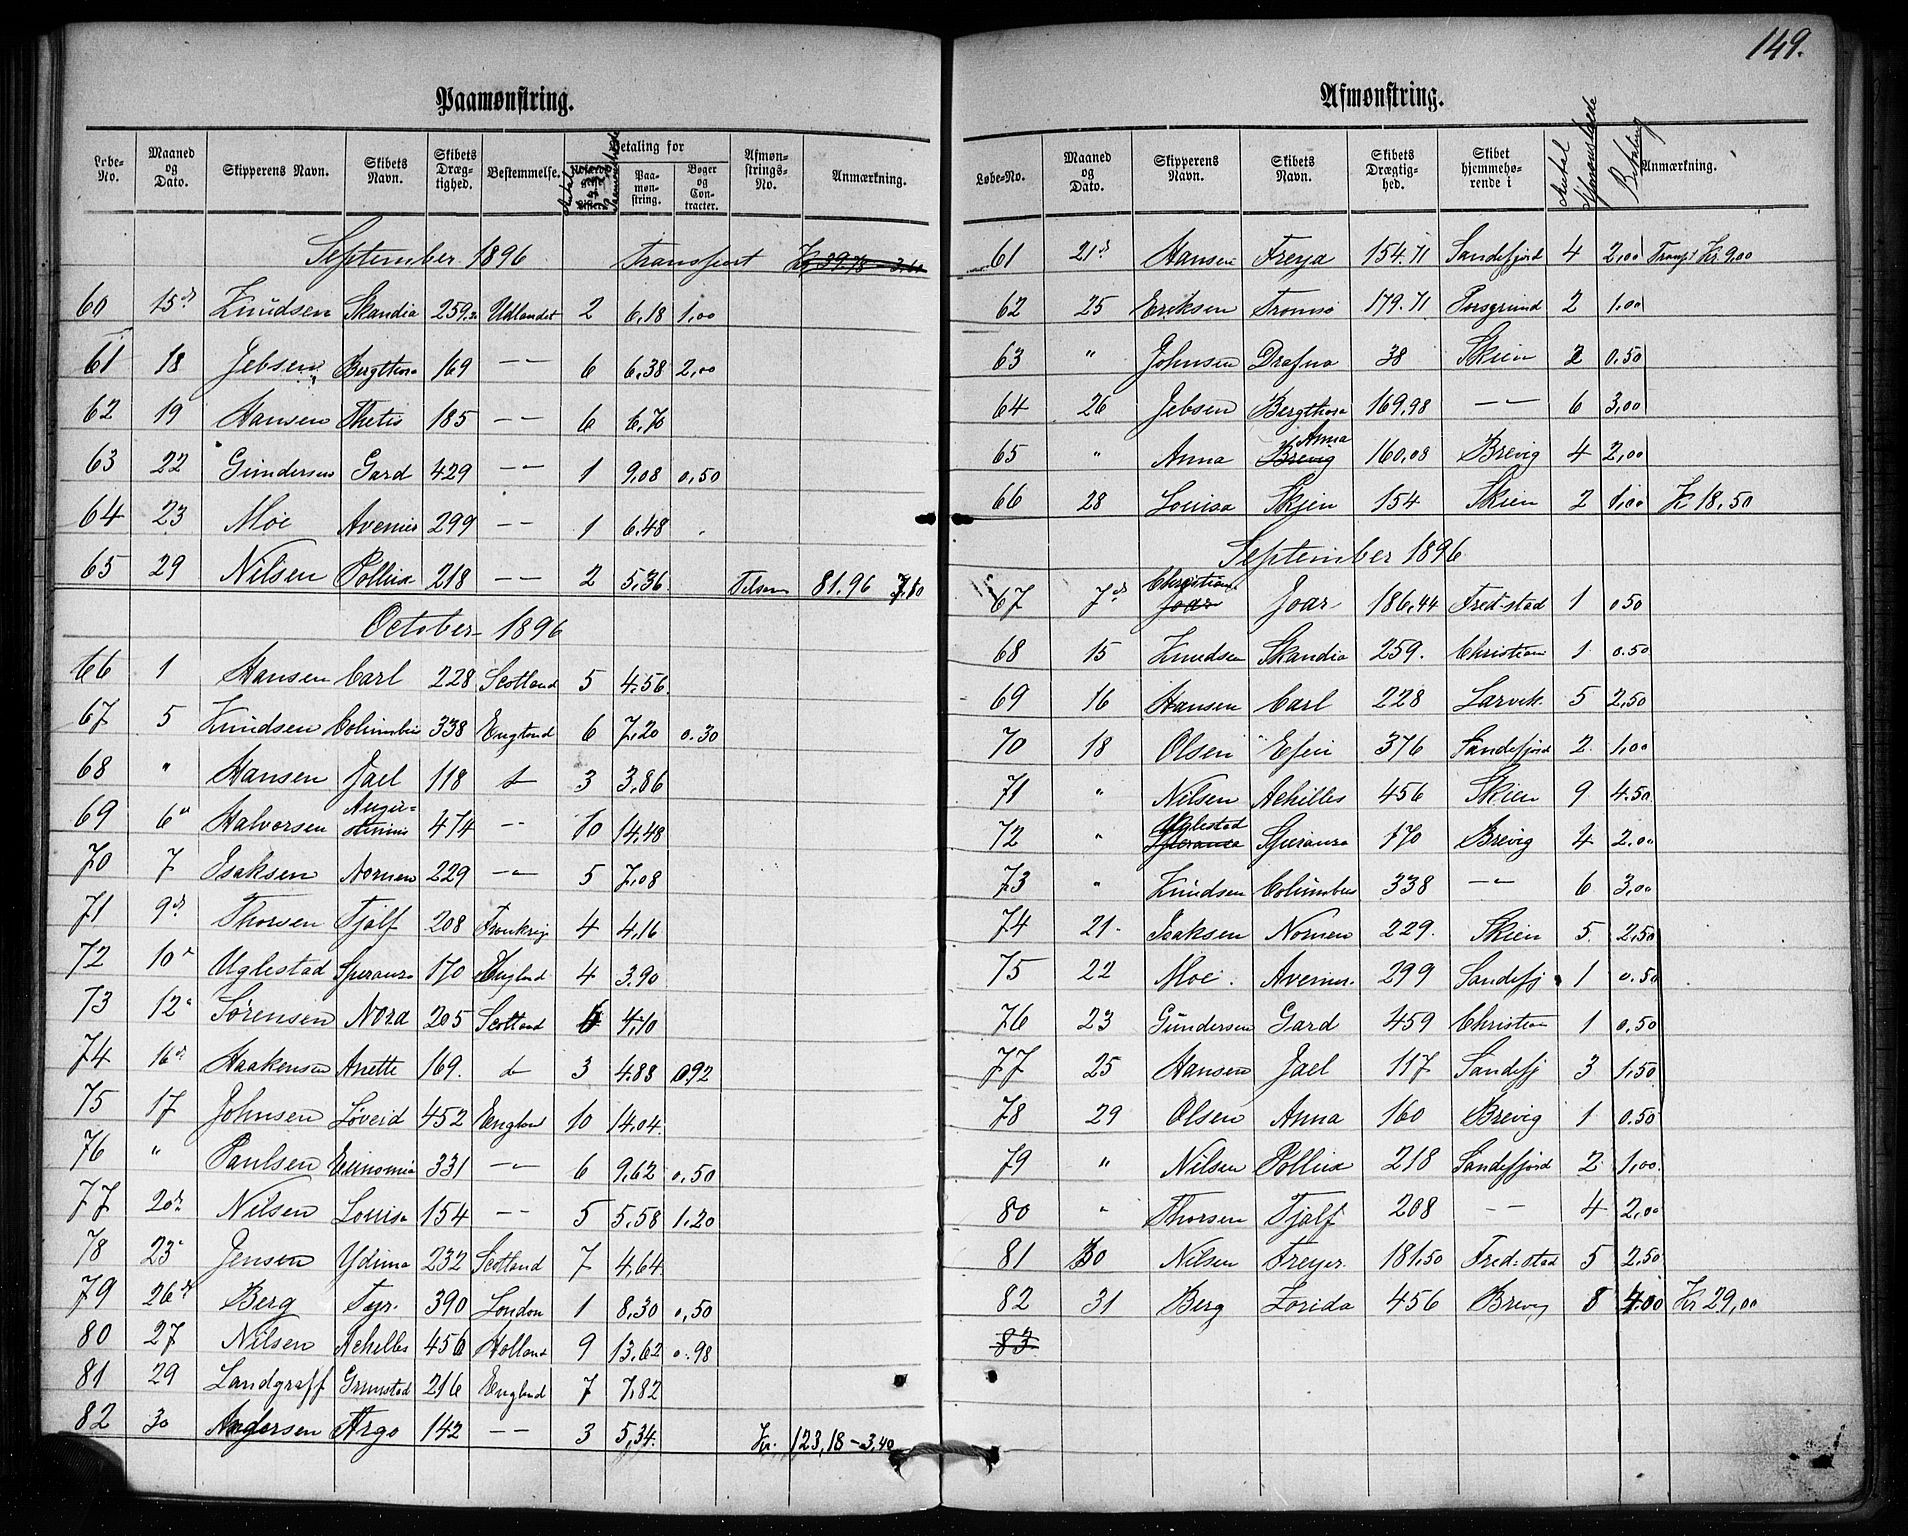 149.
Paamønstring.
Løbe-No. Maaned og Dato. Skipperens Navn. Skibets Navn. Skibets Drægtighed. Bestemmelse. Betaling for Paamønstring. Bøger og Contracter. Afmønstrings-No. Anmærkning.
September 1896 Transport Kr 39.78 - 3.60
60 15de Knudsen Skandia 259. Udlandet 2 6,18 1,00
61 18 Jebsen Bergthora 169 -"- 6 6,38 2,00
62 19 Hansen Thetis 185 -"- 6 6,70
63 22 Gundersen Gard 429 -"- 1 9,08 0,50
64 23 Moe Avenir 299 -"- 1 6,48
65 29 Nilsen Pollux 218 -"- 2 5,36 Tilsam 81.96 7,10
October 1896
66 1 Hansen Carl 228 Scotland 5 4.56
67 5 Knudsen Columbus 338 England 6 7,20 0.30
68 " Hansen Jael 118 d 3 3,86
69 6" Halvorsen 474 -"- 10 14,48
70 7 Isaksen Nornen 229 -"- 5 7,08
71 9de Thorsen Fjalf 208 Frankrig 4 4,16
72 10" Uglestad Speranza 170 England 4 3.90
73 12" Sørensen Nora 205 Scotland 4,10
74 16de Haakensen Anette 169. d 3 4.88 0.92
75 17 Johnsen Løveid 452 England 10 14,04
76 " Paulsen Eunomia 331 -"- 6 9,62 0,50
77 20de Nilsen Louisa 154 -"- 5 5,58 1,20
78 23" Jensen Yduna 232 Scotland 7 4,64
79 26de Berg Tyr. 390 London 1 8,30 0,50
80 27 Nilsen Achilles 456 Holland 9 13,62 0.98
81 29 Landgraff Grimstad 216 England 7 7,82
82 30 Andersen Argo 142 -"- 3 5,34
Kr. 123,18 - 3,40
Afmønstring.
Løbe-No. Maaned og Dato. Skipperens Navn. Skibets Navn. Skibets Drægtighed. Skibet hjemmehørende i Antal Afmønstrede Betaling Anmærkning.
61 21de Hansen Freya 154.71 Sandefjord 4 2,00 Transp. Kr. 9,00
62 25 Eriksen Tromsø 179.71 Porsgrund 2 1,00
63 " Johnsen Drafna 38 Skien 2 0.50
64 26 Jebsen Bergthora 169,98 -"- 6 3,00
65 " Anna Brevig Anna 160,08 Brevig 4 2,00
66 28 Louisa Skjen 154 Skien 2 1,00 Kr 18,50
September 1896
67 7de Joar Christian Joar 186,44 Fred-stad 1 0.50
68 15 Knudsen Skandia 259. Christian 1 0.50
69 16 Hansen Carl 228 Larvik. 5 2,50
70 18 Olsen Efeu 376 Sandefjord 2 1,00
71 " Nilsen Achilles 456 Skien 9 4.50
72 " Speranza Uglestad Speranza 170 Brevig 4 2,00
73 " Knudsen Columbus 338 -"- 6 3,00
74 21. Isaksen Nornen 229. Skien 5. 2,50
75 22 Moe. Avenir. 299 Sandefj 1 0.50
76 23 Gundersen Gard 459 Christian 1 0.50
77 25 Hansen Jael 117 Sandefj 3 1,50
78 29 Olsen Anna 160 Brevig 1 0.50
79 " Nilsen Pollux 218 Sandefjord 2 1,00
80 " Thorsen Fjalf 208 -"- 4 2,00
81 30 Nilsen Freyer. 181,50 Fred-stad 5 2,50
82 31 Berg Zorida 456 Brevig 8 4.00 Kr 29,00
83